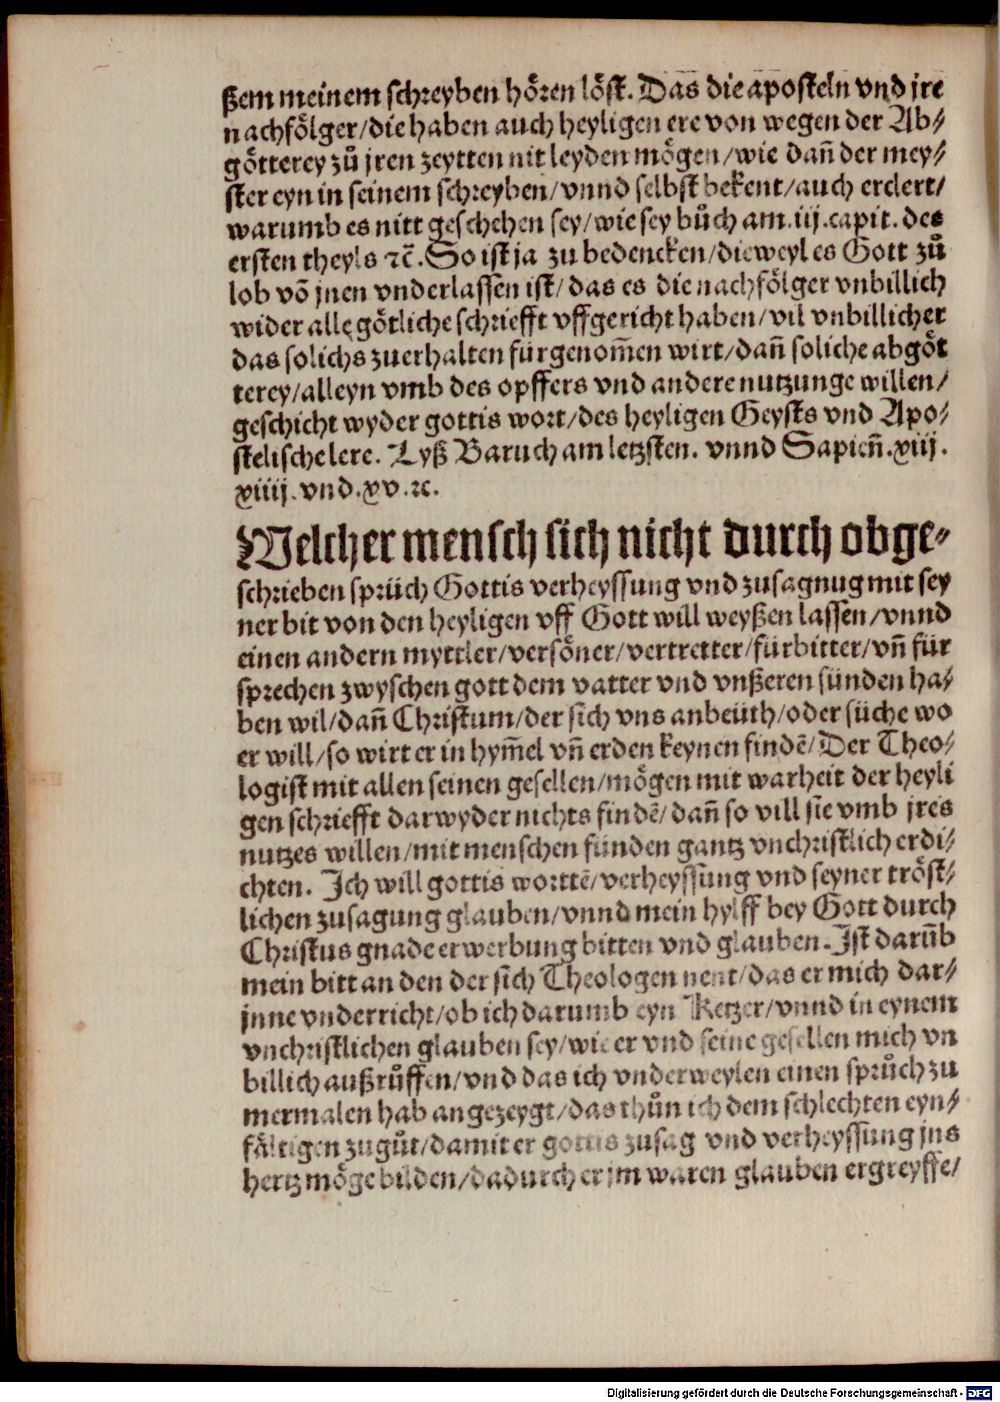 ßem meinem schreyben hören löst. Das die aposteln vnd jre
nachfölger/die haben auch heyligen ere von wegen der Ab/
götterey zů jren zeytten nit leyden mögen/wie dañ der mey/
ster eyn in seinem schreyben/vnnd selbst bekent/auch erclert/
warumb es nitt geschehen sey/wie sey bůch am.iij.capit. des
ersten theyls ⁊c̃. So ist ja zu bedencken/dieweyl es Gott zů
lob võ jnen vnderlassen ist/das es die nachfölger vnbillich
wider alle götliche schriefft vffgericht haben/vil vnbillicher
das solichs zuerhalten fürgenom̃en wirt/dañ soliche abgöt
terey/alleyn vmb des opffers vnd andere nutzunge willen/
geschicht wyder gottis wort/des heyligen Geysts vnd Apo/
stelische lere. Lyß Baruch am letzsten. vnnd Sapieñ.xiij.
xiiij.vnd.xv.⁊c.
Welcher mensch sich nicht durch obge/
schrieben sprüch Gottis verheyssung vnd zusagnug mit sey
ner bit von den heyligen vff Gott will weyßen lassen/vnnd
einen andern myttler/versöner/vertretter/fürbitter/vñ für
sprechen zwyschen gott dem vatter vnd vnßeren sünden ha/
ben wil/dañ Christum/der sich vns anbeüth/oder süche wo
er will/so wirt er in hym̃el vñ erden keynen findẽ/Der Theo/
logist mit allen seinen gesellen/mögen mit warheit der heyli
gen schriefft darwyder nichts findẽ/dañ so vill sie vmb jres
nutzes willen/mit menschen fünden gantz vnchristlich erdi/
chten. Ich will gottis worttẽ/verheyssung vnd seyner tröst/
lichen zusagung glauben/vnnd mein hylff bey Gott durch
Christus gnade erwerbung bitten vnd glauben. Ist darũb
mein bitt an den der sich Theologen nent/das er mich dar/
jnne vnderricht/ob ich darumb eyn Ketzer/vnnd in eynem
vnchristlichen glauben sey/wie er vnd seine gesellen mich vn
billich außrůffen/vnd das ich vnderweylen einen sprůch zu
mermalen hab angezeygt/das thůn ich dem schlechten eyn/
fältigen zugůt/damit er gottis zusag vnd verheyssung jns
hertz möge bilden/dadurch er jm waren glauben ergreyffe/
Digitalisierung gefördert durch die Deutsche Forschungsgemeinschaft - DFG